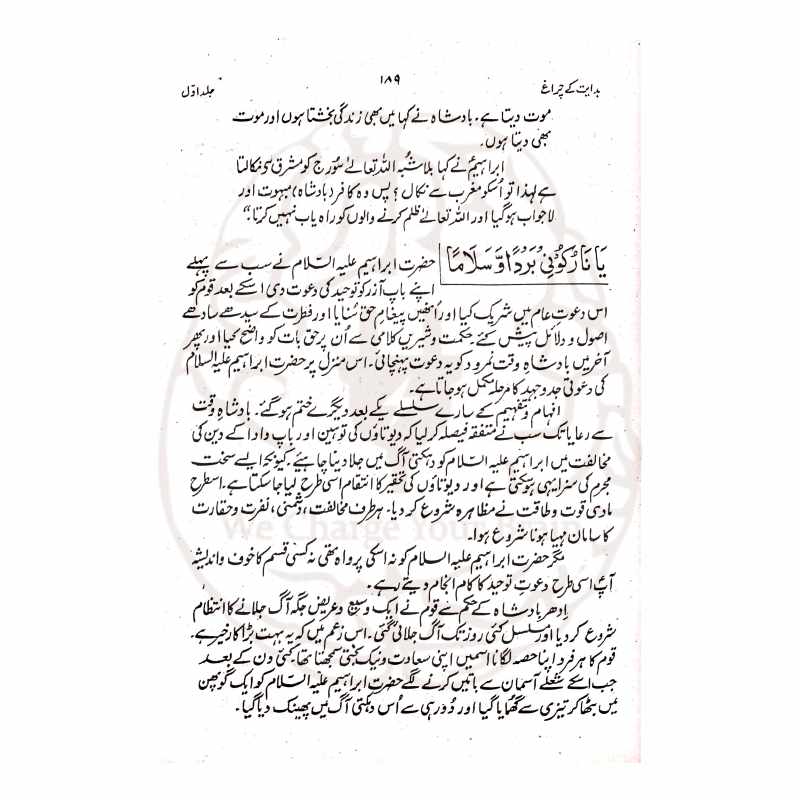 ہدایت کے چراغ ۱۸۹ جلد اوّل
موت دیتا ہے۔ بادشاہ نے کہا میں بھی زندگی بخشتا ہوں اور موت
بھی دیتا ہوں۔
ابراہیمؑ نے کہا بلاشُبہ اللہ تعالےٰ سُورج کو مشرق سے نکالتا
ہے لہذا تو اُسکو مغرب سے نکال؟ پس وہ کافر (بادشاہ) مبہوت اور
لاجواب ہو گیا اور اللہ تعالےٰ ظلم کرنے والوں کو راہ یاب نہیں کرتا۔"
یَا نَارُ کُوْنِیْ بَرْدًا وَّ سَلَامًا
حضرت ابراہیم علیہ السّلام نے سب سے پہلے
اپنے باپ آزر کو توحید کی دعوت دی اسکے بعد قوم کو
اس دعوتِ عام میں شریک کیا اور اُنھیں پیغامِ حق سُنایا اور فطرت کے سیدھے سادھے
اصول و دلائل پیش کئے حکمت و شیریں کلامی سے اُن پر حق بات کو واضح کیا اور پھر
آخر میں بادشاہِ وقت نمرود کو یہ دعوت پہنچائی۔ اس منزل پر حضرت ابراہیم علیہ السّلام
کی دعوتی جدوجہد کا مرحلہ مکمل ہو جاتا ہے۔
افہام و تفہیم کے سارے سلسلے یکے بعد دیگرے ختم ہو گئے۔ بادشاہِ وقت
سے رعایا تک سب نے متفقہ فیصلہ کر لیا کہ دیوتاؤں کی توہین اور باپ دادا کے دین کی
مخالفت میں ابراہیم علیہ السّلام کو دہکتی آگ میں جلا دینا چاہئیے۔ کیونکہ ایسے سخت
مجرم کی سزا یہی ہو سکتی ہے اور دیوتاؤں کی تحقیر کا انتقام اسی طرح لیا جا سکتا ہے۔ اسطرح
مادی قوت و طاقت نے مظاہرہ شروع کر دیا۔ ہر طرف مخالفت، دشمنی، نفرت و حقارت
کا سامان مہیا ہونا شروع ہوا۔
We Charge Your Brain
مگر حضرت ابراہیم علیہ السلام کو نہ اسکی پرواہ تھی نہ کسی قسم کا خوف و اندیشہ
آپؑ اسی طرح دعوتِ توحید کا کام انجام دیتے رہے۔
اِدھر بادشاہ کے حکم سے قوم نے ایک وسیع و عریض جگہ آگ جلانے کا انتظام
شروع کر دیا اور مسلسل کئی روز تک آگ جلائی گئی۔ اس زعم میں کہ یہ بہت بڑا کارِ خیر ہے۔
قوم کا ہر فرد اپنا حصہ لگانا اسمیں اپنی سعادت و نیک بختی سمجھتا تھا۔ کئی دن کے بعد
جب اسکے شعلے آسمان سے باتیں کرنے لگے حضرت ابراہیم علیہ السّلام کو ایک گوپھن
میں بٹھا کر تیزی سے گھمایا گیا اور دُور ہی سے اُس دہکتی آگ میں پھینک دیا گیا۔